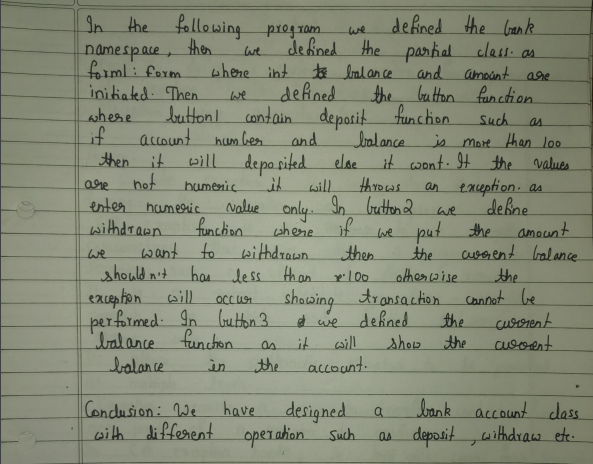 In the following program we defined the bank
namespace, then we defined the partial class. as
form1 : form where int balance and amount are
initiated. Then we defined the button function
where button1 contain deposit function such as
if account number and balance is more than 100
then it will deposited else it wont. If the values
are not numeric it will throws an exception. as
enter numeric value only. In button2 we define
withdrawn function where if we put the amount
we want to withdrawn then the current balance
shouldn't has less than r.100 otherwise the
exception will occur showing transaction cannot be
performed. In button3 we defined the current
balance function as it will show the current
balance in the account.
Conclusion: We have designed a bank account class
with different operation such as deposit, withdraw etc.